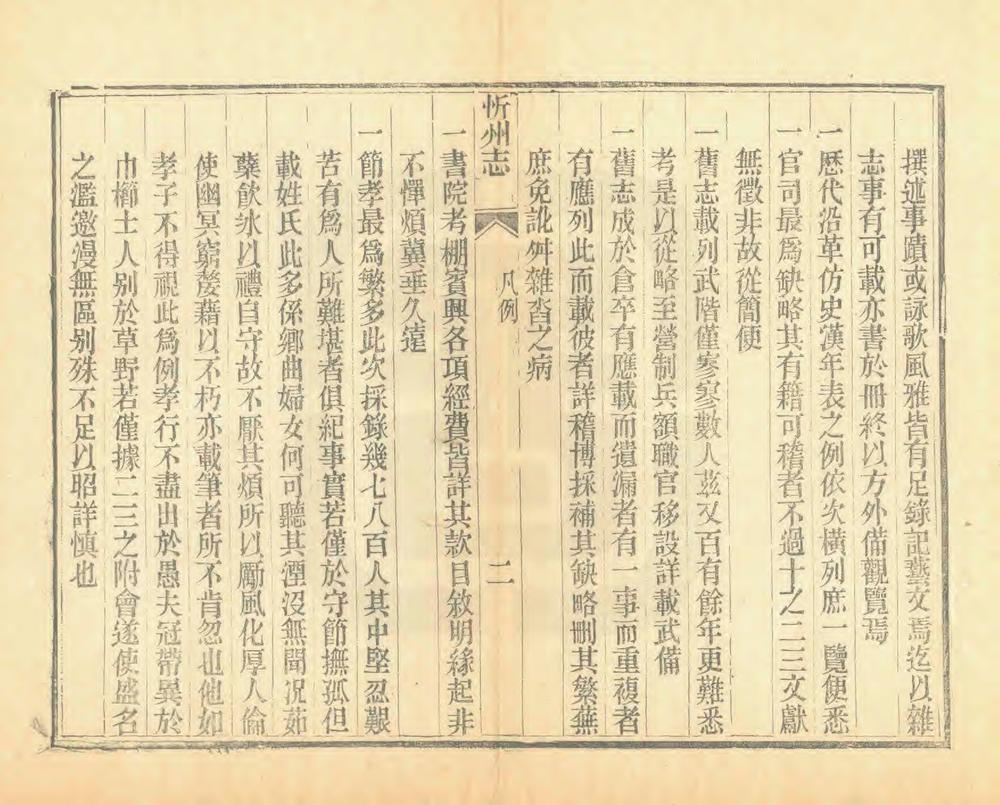 撰述事蹟或詠歌風雅皆有足錄記藝文焉迄以雜
志事有可載亦書於冊終以方外備觀覽焉
一歷代沿革仿史漢年表之例依次橫列庶一覽便悉
一官司最爲缺略其有籍可稽者不過十之二三文獻
無徵非故從簡便
一舊志載列武階僅寥寥數人茲又百有餘年更難悉
考是以從略至營制兵額職官移設詳載武備
一舊志成於倉卒有應載而遺漏者有一事而重複者
有應列此而載彼者詳稽博採補其缺略刪其繁蕪
庶免訛舛雜沓之病
忻州志 凡例 二
一書院考棚賓興各項經費皆詳其款目敘明緣起非
不憚煩冀垂久遠
一節孝最爲繁多此次採錄幾七八百人其中堅忍艱
苦有爲人所難堪者俱紀事實若僅於守節撫孤但
載姓氏此多係鄉曲婦女何可聽其湮沒無聞况茹
櫱飲冰以禮自守故不厭其煩所以勵風化厚人倫
使幽冥窮嫠藉以不朽亦載筆者所不肯忽也他如
孝子不得視此爲例孝行不盡出於愚夫冠帶異於
巾櫛士人别於草野若僅據二三之附會遂使盛名
之濫邀漫無區别殊不足以昭詳慎也